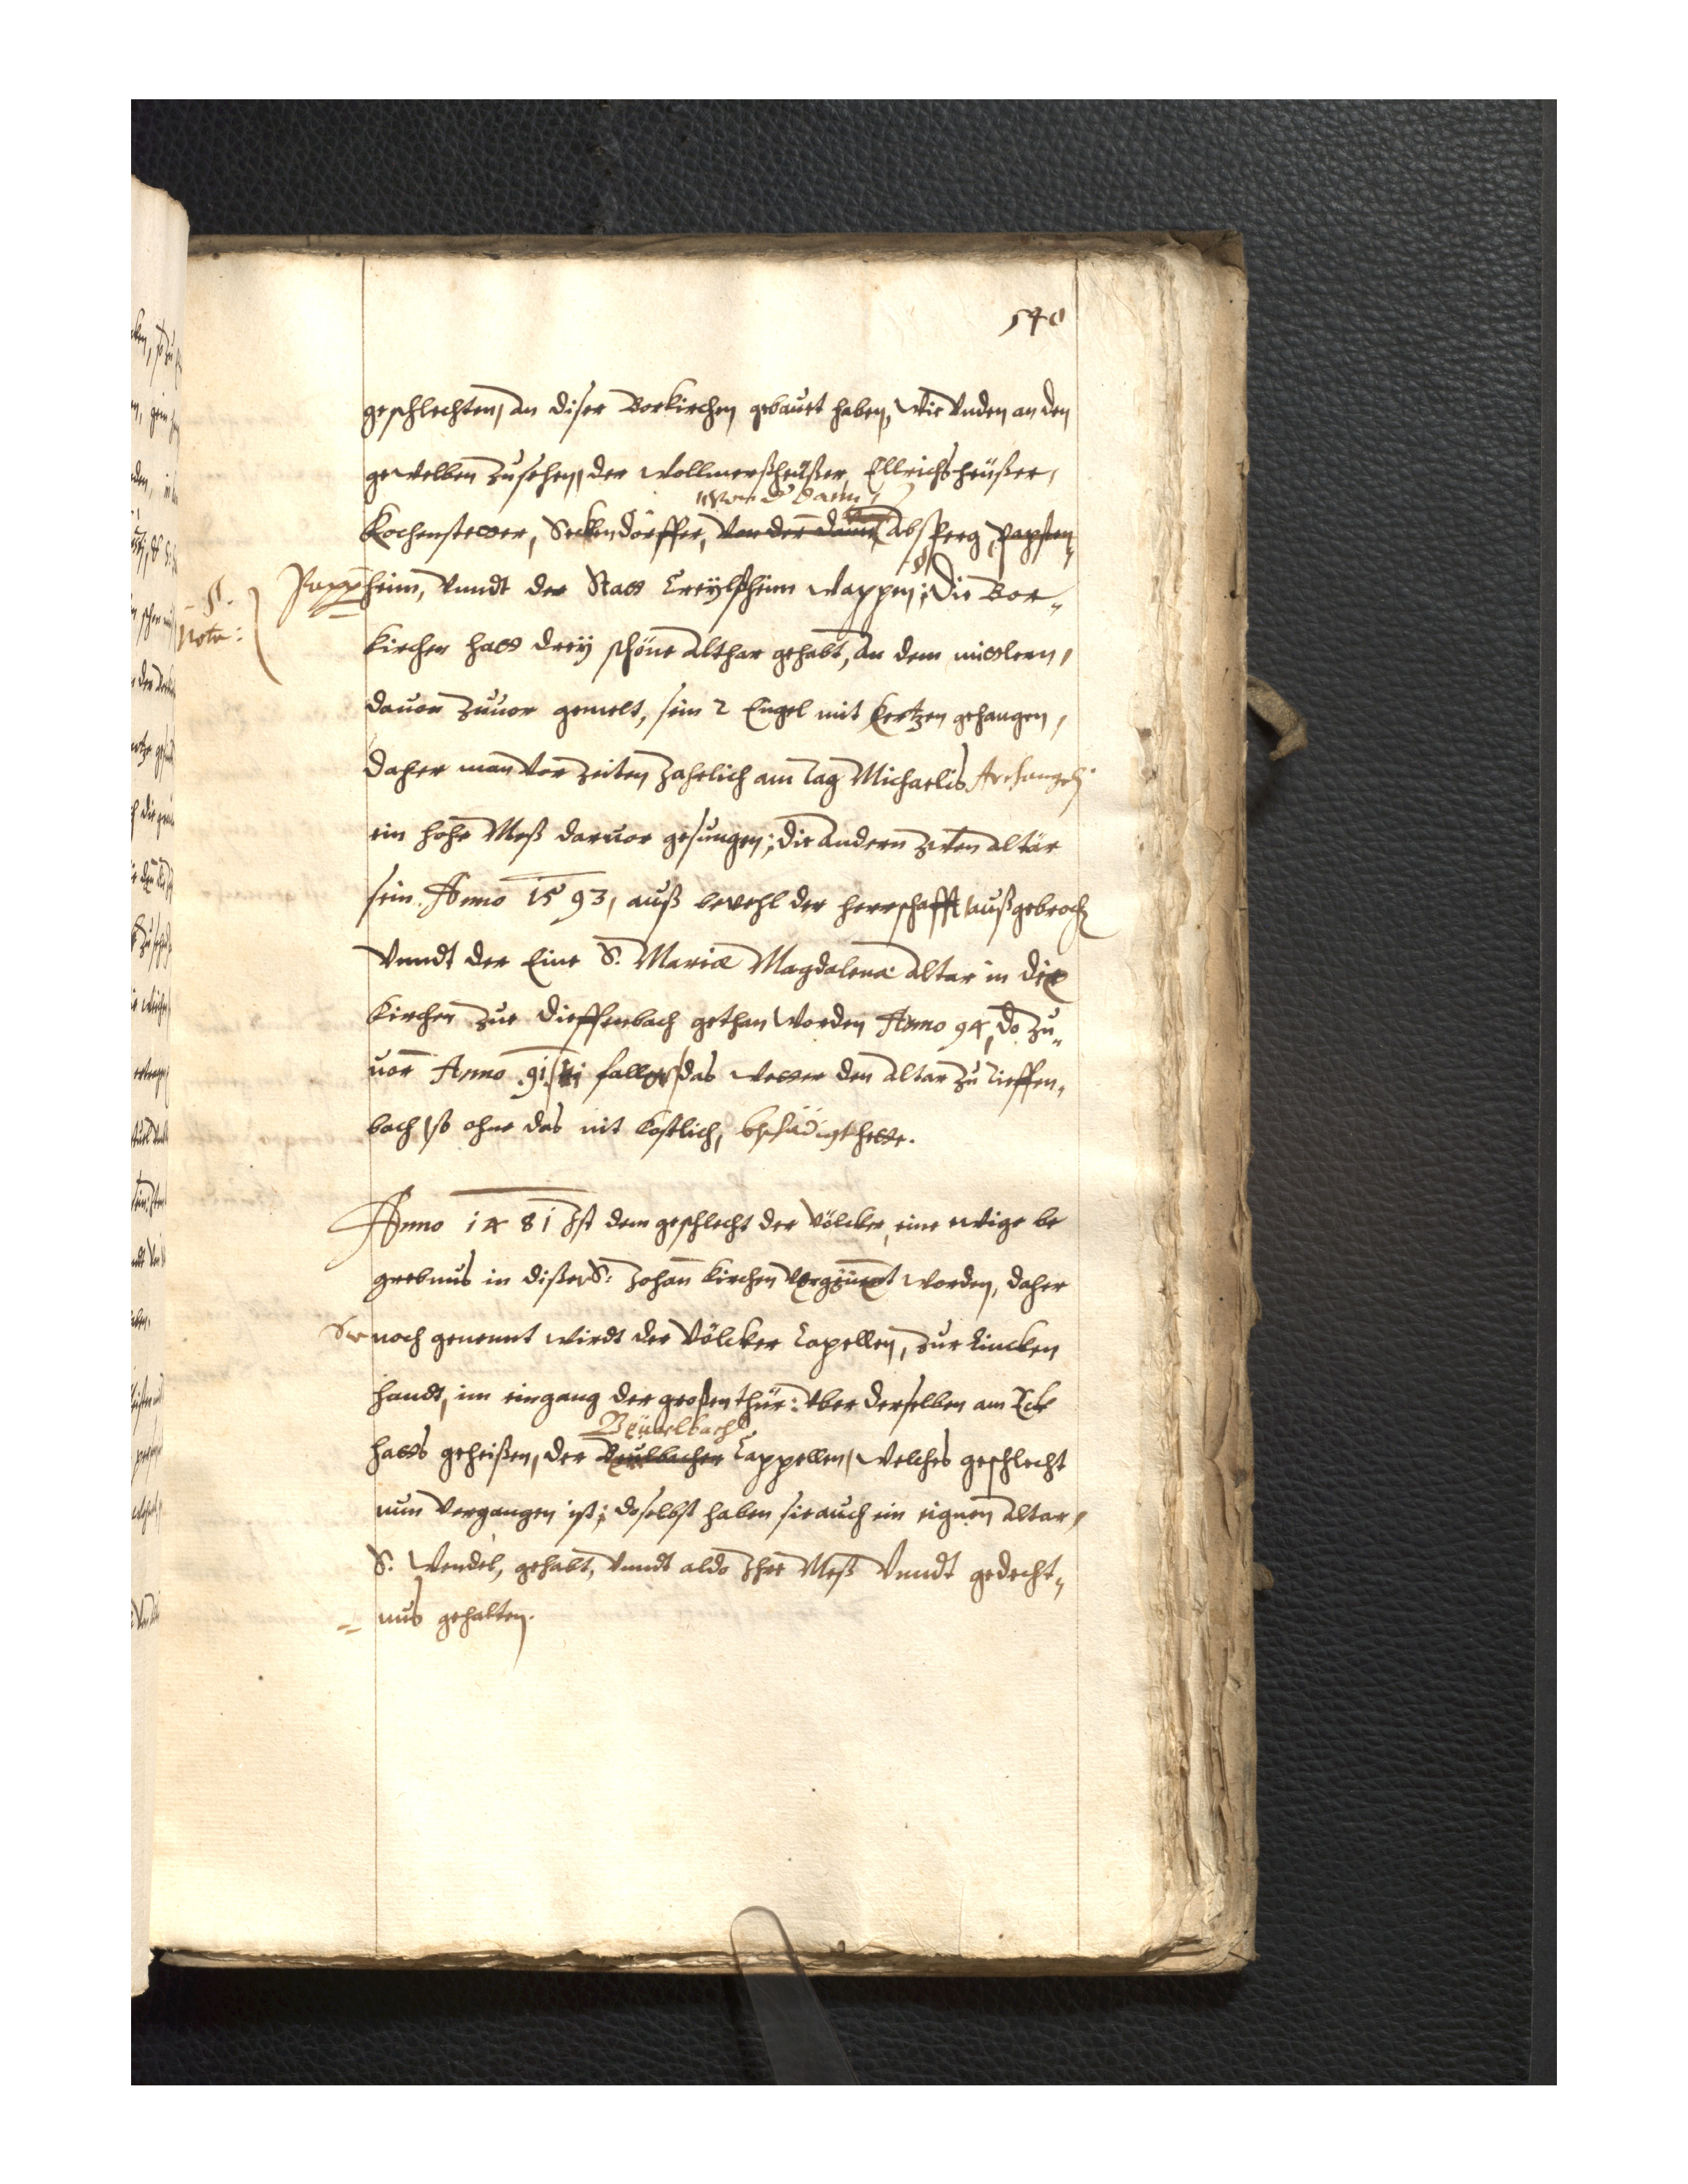 540
geschlechten, an diser Borkirchen gebauet haben, Wie Vnden an den
gewelben Zusehen, der Wollmerßheüßer, Ellrichsheüßer,
von d' Dann
Kochenstetter, Seckendörffer, Von der Dann, Absperg, Papen„
Papp heim, Vnndt der Statt Creÿlßheim wappen; Die Bor„
Nota:
kirchen hatt dreÿ schöne Althar gehabt, An dem mittlern,
dauon Zuuor gemelt, sein 2 Engel mit Kertzen gehangen,
daher man Vor Zeiten Jahrlich am Tag Michaelis Archangelj
ein hohe Meß daruor gesungen; Die Andern zwen altär
sein Anno 1593, auß bevehl der herrschafft, außgebroch
Vnndt der Eine S. Mariæ Magdalena Altar in die
Kirchen zue Dieffenbach gethan Worden Anno 94, Do Zu„
uor Anno 91 das wetter den Altar Zu Tieffen„
bach, so ohne das nit Costlich, beschädigt hette.
Anno 1481 Ist dem geschlecht der Völcker, eine ewige be
grebnus in dißer S: Johan Kirchen Vergünt worden, daher
noch genennt wirdt der Völcker Capellen, Zur Lincken
handt, im eingang der großen thür: Vber derselben am Eck
Beüerlbach
hatts geheißen, der Beülbacher Cappellen, Welches geschlecht
nun Vergangen ist; doselbst haben sie auch ein eignen Altar,
S. Wendel, gehabt, Vnndt aldo Ihre Meß Vnndt gedecht„
nus gehalten.